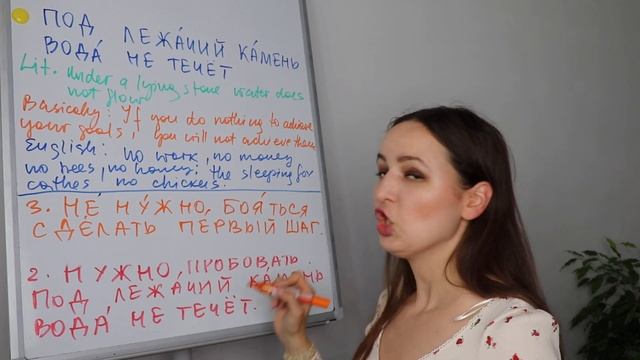 ПОД ЛЕЖА́ЧИЙ КА́МЕНЬ
ВОДА́ НЕ ТЕЧЁТ
Lit. Under a lying stone water does
not flow
Basically: If you do nothing to achieve
your goals, you will not achieve them
English: no work, no money
no bees, no honey; the sleeping fox
catches no chickens.
3. НЕ НУ́ЖНО БОЯ́ТЬСЯ
СДЕ́ЛАТЬ ПЕ́РВЫЙ ШАГ.
2. НУ́ЖНО ПРО́БОВАТЬ.
ПОД ЛЕЖА́ЧИЙ КА́МЕНЬ
ВОДА́ НЕ ТЕЧЁТ.